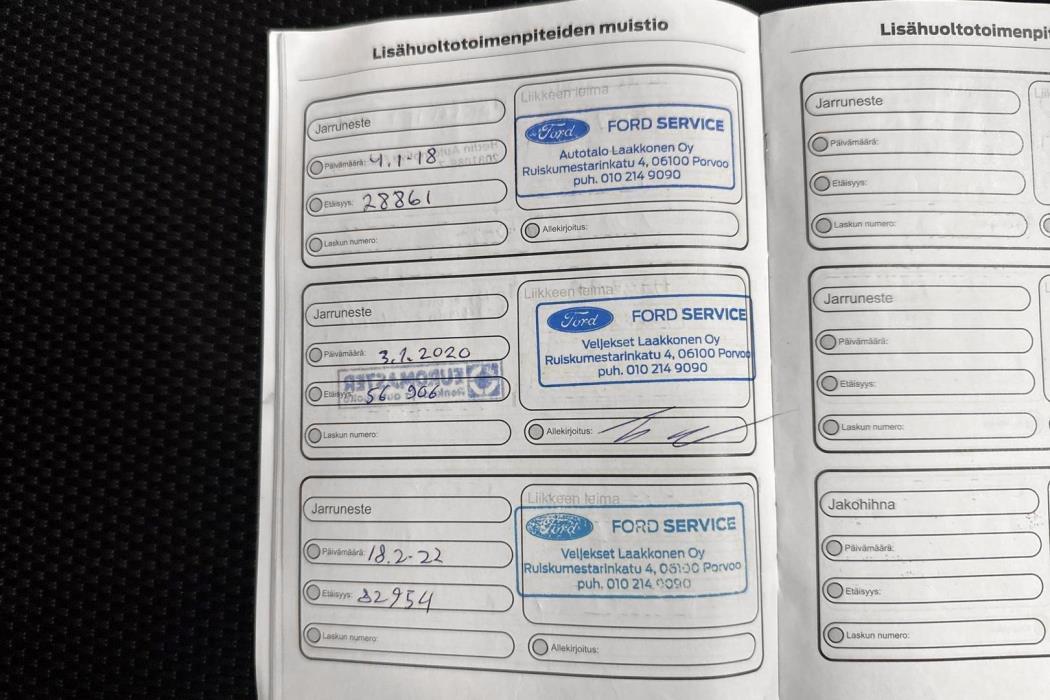 Lisähuoltotoimenpiteiden muistio
Jarruneste
Päivämäärä: 4.1-18
Etäisyys: 28861
Laskun numero:
Liikkeen leima
Ford FORD SERVICE
Autotalo Laakkonen Oy
Ruiskumestarinkatu 4, 06100 Porvoo
puh. 010 214 9090
Allekirjoitus:
Jarruneste
Päivämäärä: 3.1.2020
Etäisyys: 56 906
EUROMASTER
Laskun numero:
Liikkeen leima
Ford FORD SERVICE
Veljekset Laakkonen Oy
Ruiskumestarinkatu 4, 06100 Porvoo
puh. 010 214 9090
Allekirjoitus:
Jarruneste
Päivämäärä: 18.2-22
Etäisyys: 82954
Laskun numero:
Liikkeen leima
Ford FORD SERVICE
Veljekset Laakkonen Oy
Ruiskumestarinkatu 4, 06100 Porvoo
puh. 010 214 9090
Allekirjoitus:
Lisähuoltotoimenpi
Jarruneste
Päivämäärä:
Etäisyys:
Laskun numero:
Jarruneste
Päivämäärä:
Etäisyys:
Laskun numero:
Jakohihna
Päivämäärä:
Etäisyys:
Laskun numero: